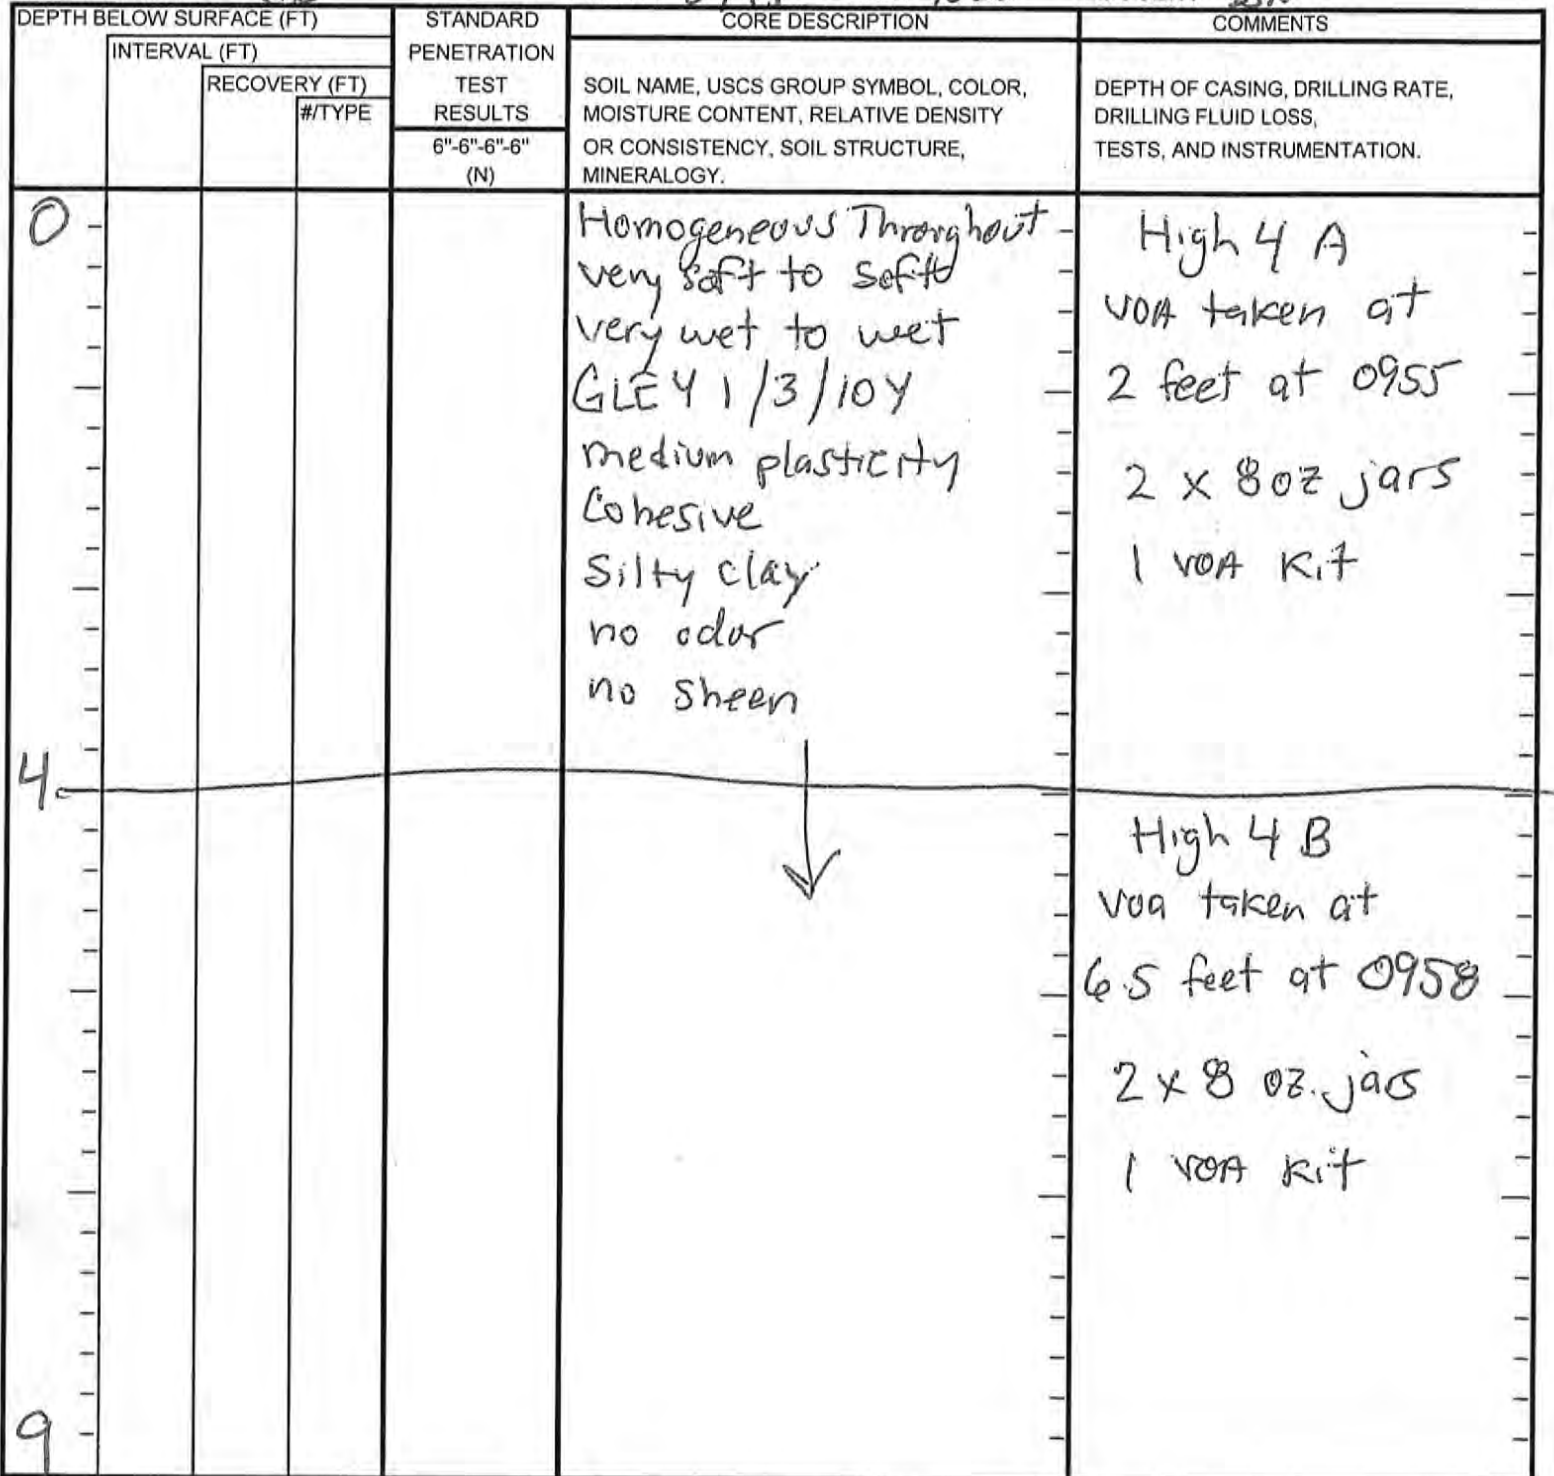 DEPTH BELOW SURFACE (FT)
INTERVAL (FT)
RECOVERY (FT)
#/TYPE
STANDARD
PENETRATION
TEST
RESULTS
6"-6"-6"-6"
(N)
CORE DESCRIPTION
SOIL NAME, USCS GROUP SYMBOL, COLOR,
MOISTURE CONTENT, RELATIVE DENSITY
OR CONSISTENCY, SOIL STRUCTURE,
MINERALOGY.
COMMENTS
DEPTH OF CASING, DRILLING RATE,
DRILLING FLUID LOSS,
TESTS, AND INSTRUMENTATION.
0
Homogeneous Throughout
very soft to soft
very wet to wet
GLEY 1/3/10Y
medium plasticity
Cohesive
Silty clay
no odor
no sheen
High 4 A
VOA taken at
2 feet at 0955
2 x 8oz jars
1 VOA Kit
4
High 4 B
Voa taken at
6.5 feet at 0958
2 x 8 oz. jars
1 VOA Kit
9